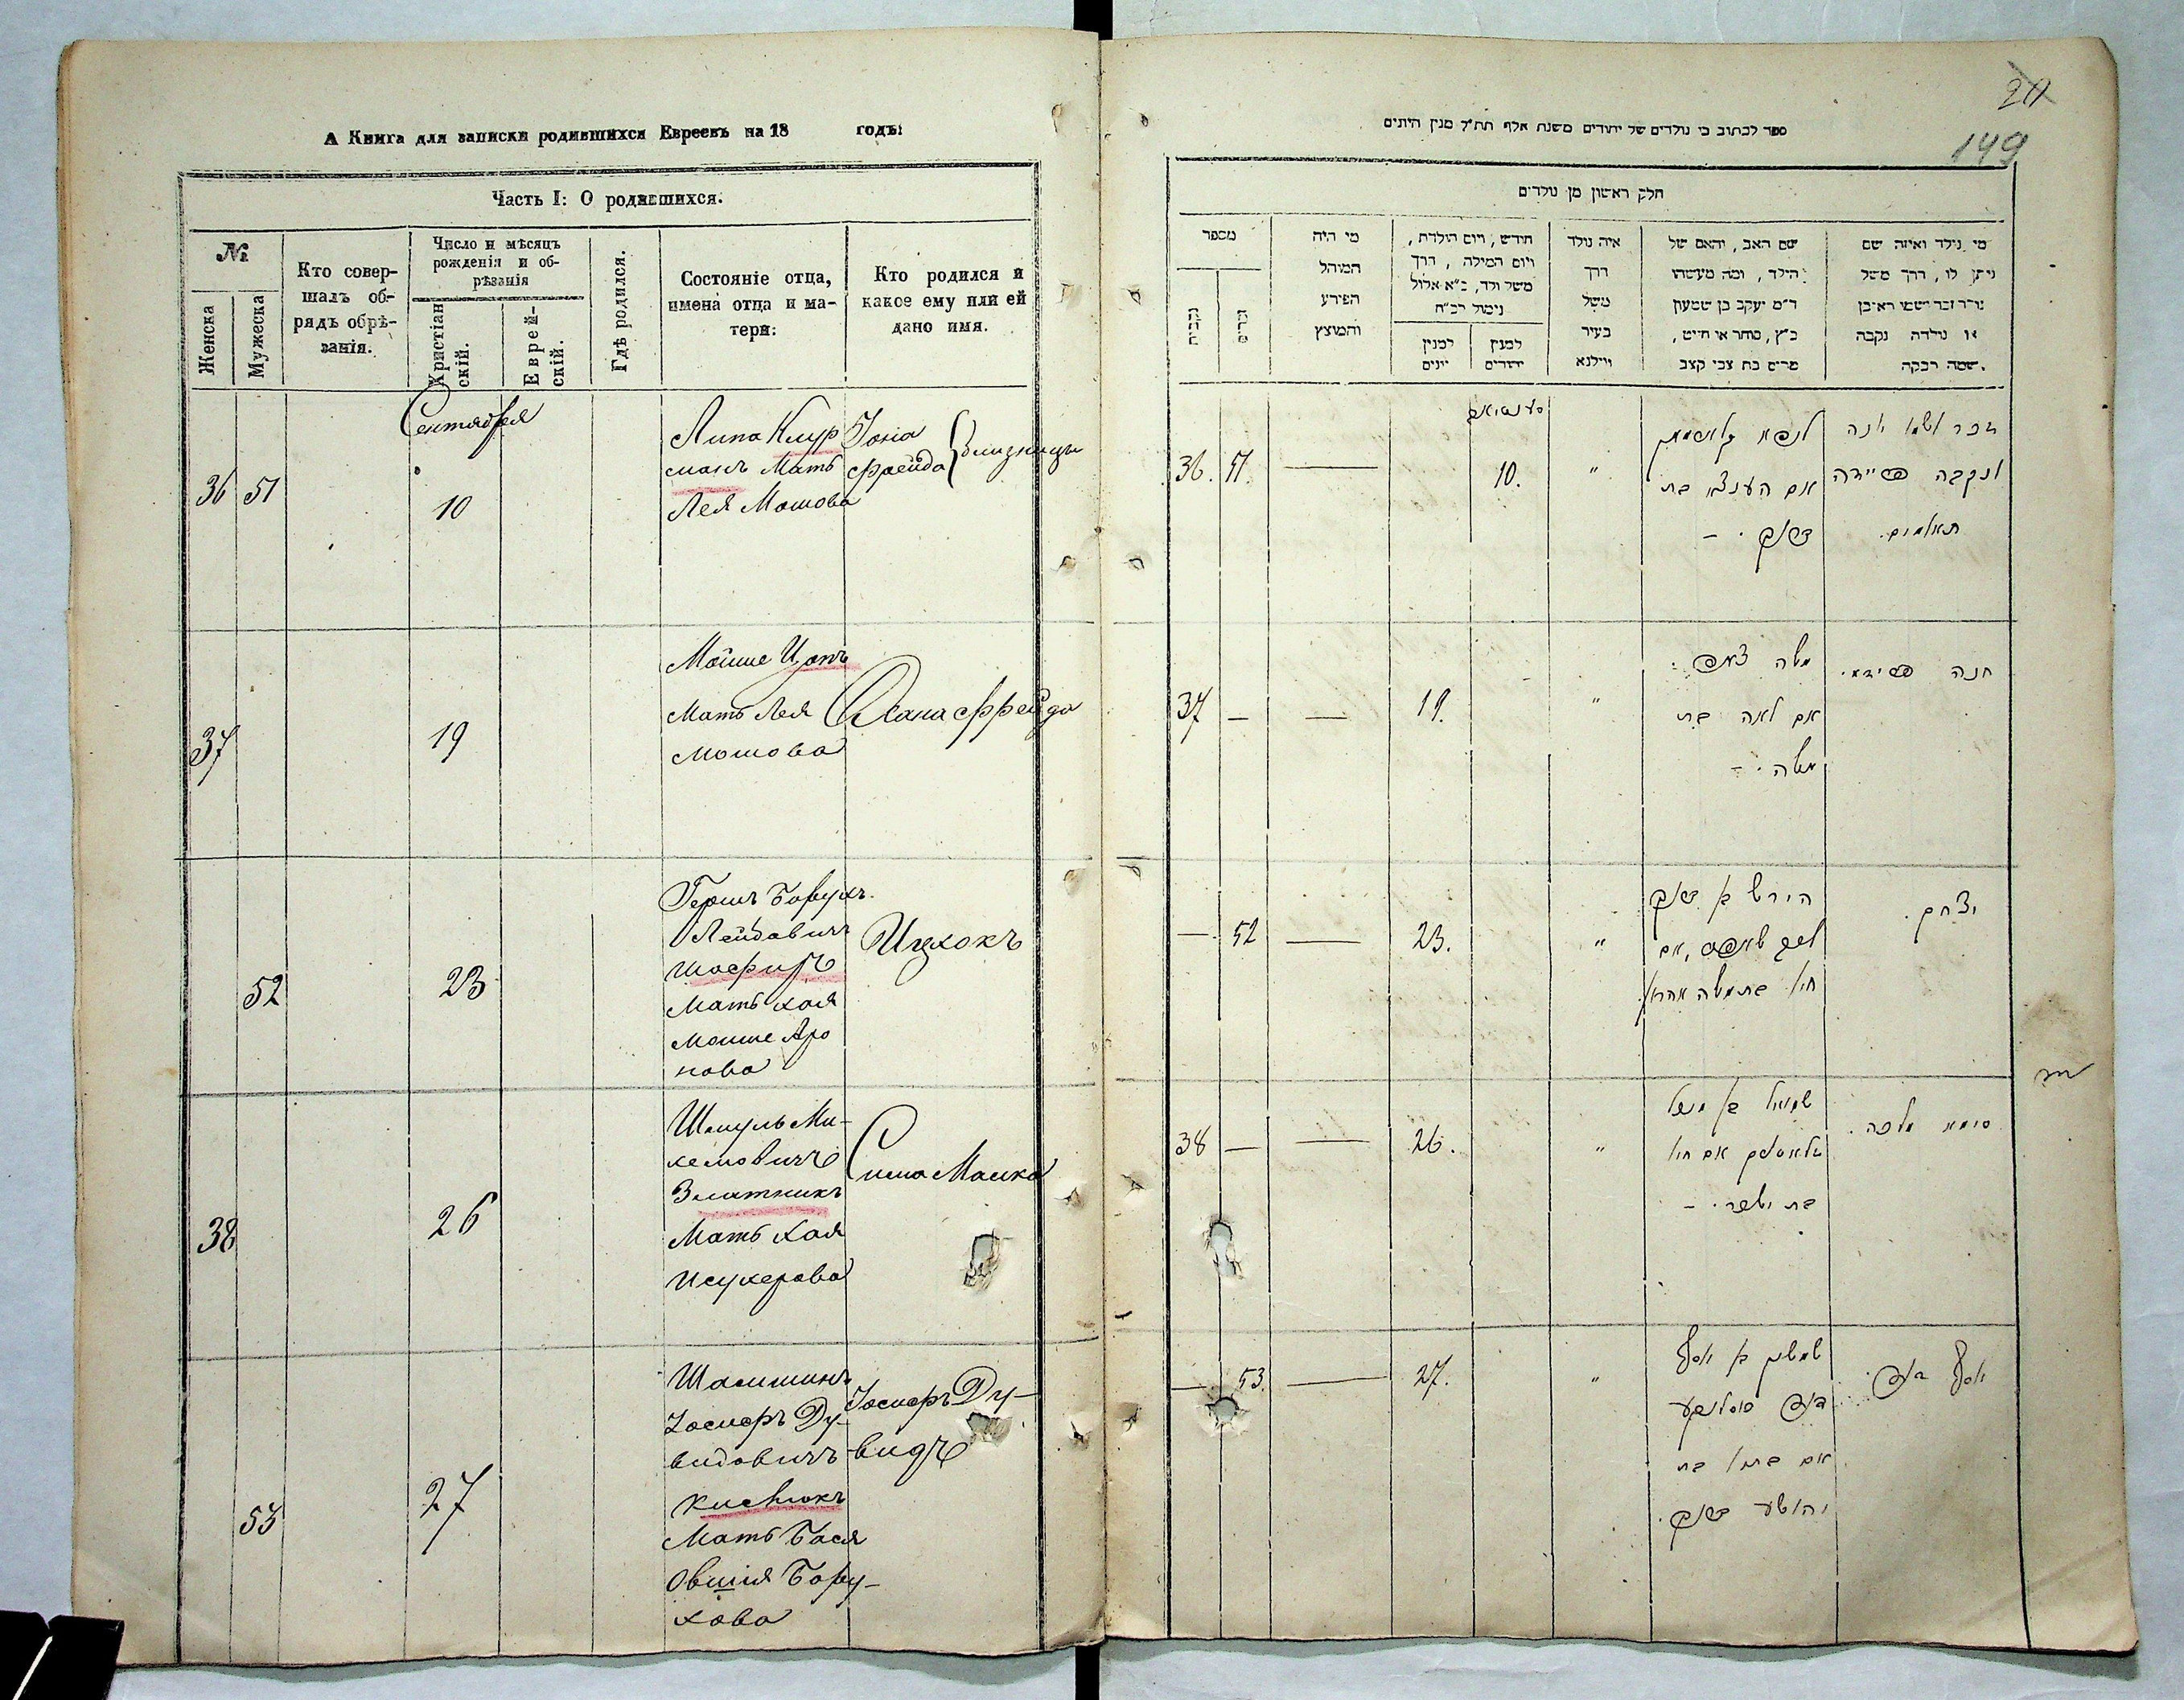 А Книга для записки родившихся Евреевъ на 18 годъ:
Часть I: О родившихся.
№
Женска
Мужеска
Кто совер-
шалъ об-
рядъ обрѣ-
занія.
Число и мѣсяцъ
рожденія и об-
рѣзанія
Христіан
скій.
Еврей-
скій.
Гдѣ родился.
Состояніе отца,
имена отца и ма-
тери:
Кто родился и
какое ему или ей
дано имя.
Сентября
36 51
10
Липа
манъ Мать
Лея Мошова
Іона
Фрейда
Близнецы
37
19
Мойше Цопъ
Мать Лея
Мошова
Хана Фрейда
52
23
Герш Борухъ
Лейбовичъ
Шафиръ
Мать Хая
Мойше Аро
нова
Ицхокъ
38
26
Шмуль Ми-
хелевичъ
Златникъ
Мать Хая
Исухерова
Сима Малка
53
27
Шамшинъ
Іосифъ Ду-
видовичъ
Кисѣлюкъ
Мать Бася
Овшія Бору-
хова
Іосифъ Ду-
видъ
20
149
ספר לכתוב בו נולדים של יהודים משנת אלף תת״ל מנין היונים
חלק ראשון מן נולדים
מספר
נקבות
זכרים
מי היה
המוהל
הפורע
והמוצץ
חודש, ויום הולדת,
ויום המילה, דרך
משל ולד, כ״א אלול
נימול רכ״ח
למנין
יונים
למנין
יהודים
איה נולד
דרך
משל
בעיר
ווילנא
שם האב, והאם של
הילד, ומה מעשהו
ד״מ יעקב בן שמעון
כ״ץ, סוחר או חייט,
מרים בת צבי קצב
מי נולד ואיזה שם
ניתן לו, דרך משל
נולד זכר ושמו ראובן
או נולדה נקבה
שמה רבקה.
36. 51. — 10. "
אם
בת
ברוך. —
זכר ושמו יונה
ונקבה פריידה
תאומים.
37 — — 19. "
משה צאפ.
אם לאה בת
משה. —
חנה פריידא.
— 52 — 23. "
הירש ב׳ ברוך
ליב שאפיר, אם
חי׳ בת משה אהרן
יצחק.
38 — — 26. "
שמואל ב׳ מיכל
זלאטניק אם חי׳
בת ישכר. —
סימא מלכה.
— 53. — 27. "
שמשון ב׳ יוסף
דוד
אם בת
יהושע ברוך.
יוסף דוד.